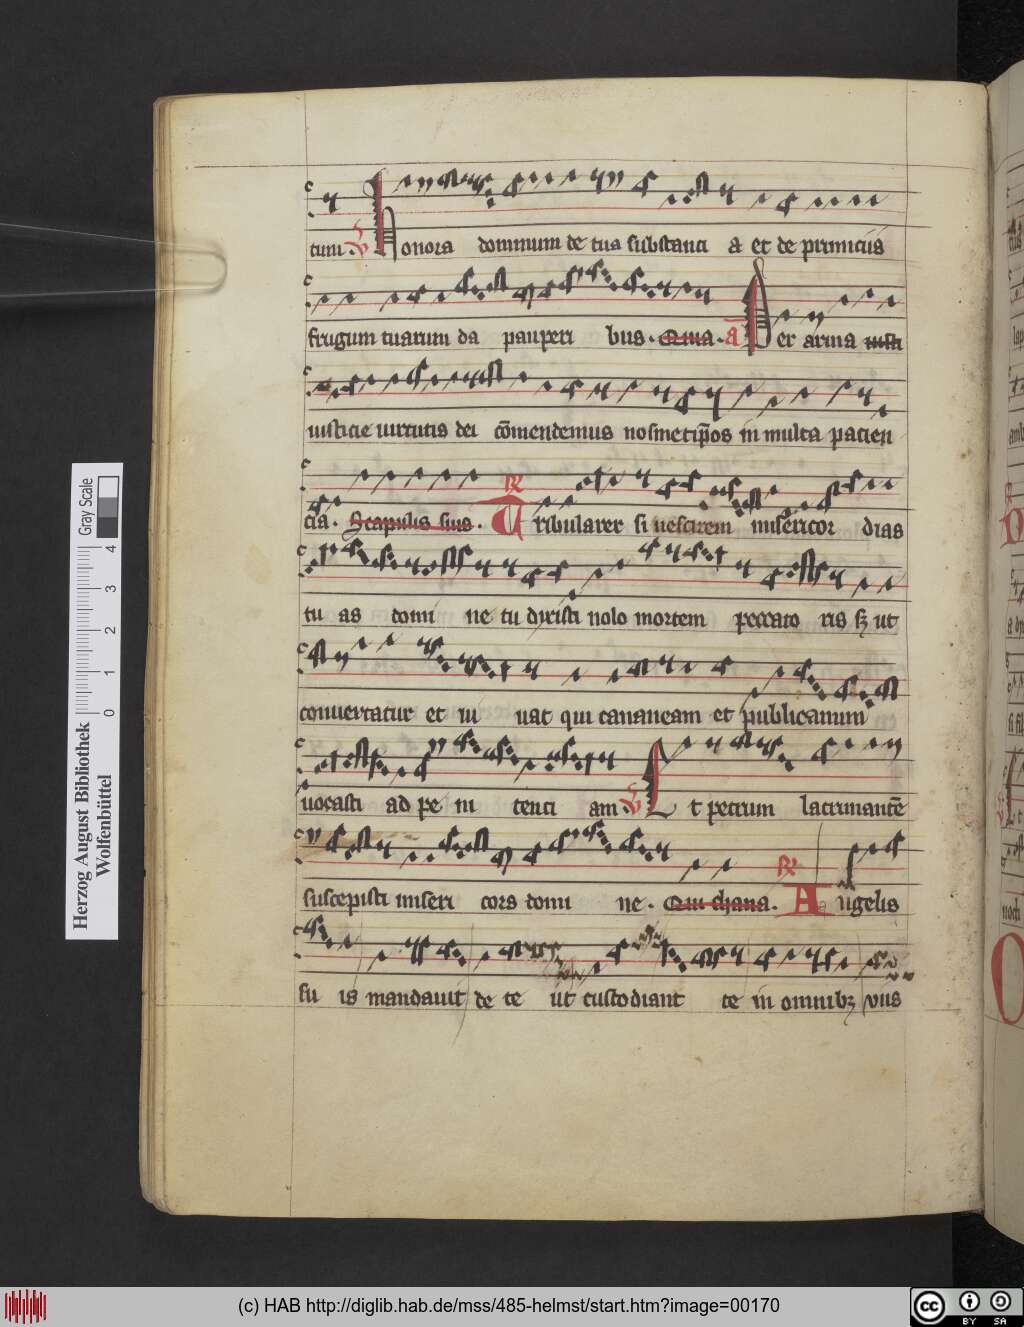 tum · V Honora dominum de tua substanci a et de primiciis
frugum tuarum da pauperi bus · Quia · a Per arma iusti
iusticie uirtutis dei cōmendemus nosmetip̄os in multa pacien
cia · Scapulis suis · R Tribularer si nescirem misericor dias
tu as domi ne tu dixisti nolo mortem peccato ris sꝫ ut
conuertatur et ui uat qui cananeam et publicanum
uocasti ad pe ni tenci am · V Et petrum lacrimantē
suscepisti miseri cors domi ne · Qui chana · R A ngelis
su is mandauit de te ut custodiant te in omnibꝫ viis
Herzog August Bibliothek
Wolfenbüttel
0 1 2 3 4
Gray Scale
(c) HAB http://diglib.hab.de/mss/485-helmst/start.htm?image=00170
cc BY SA